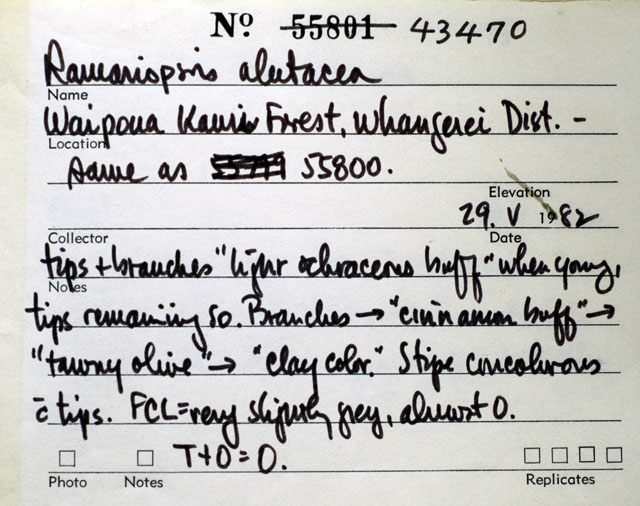 Nº 55801 43470
Ramariopsis alutacea
Name
Waipoua Kauri Forest, Whangerei Dist. -
Location
Same as 55799 55800.
Elevation
29. V 1982
Collector Date
tips + branches "light ochraceous buff" when young,
Notes
tips remaining so. Branches → "cinnamon buff" →
"tawny olive" → "clay color." Stipe concolorous
c̄ tips. FCL = very slightly grey, almost 0.
T+O = O.
Photo Notes Replicates